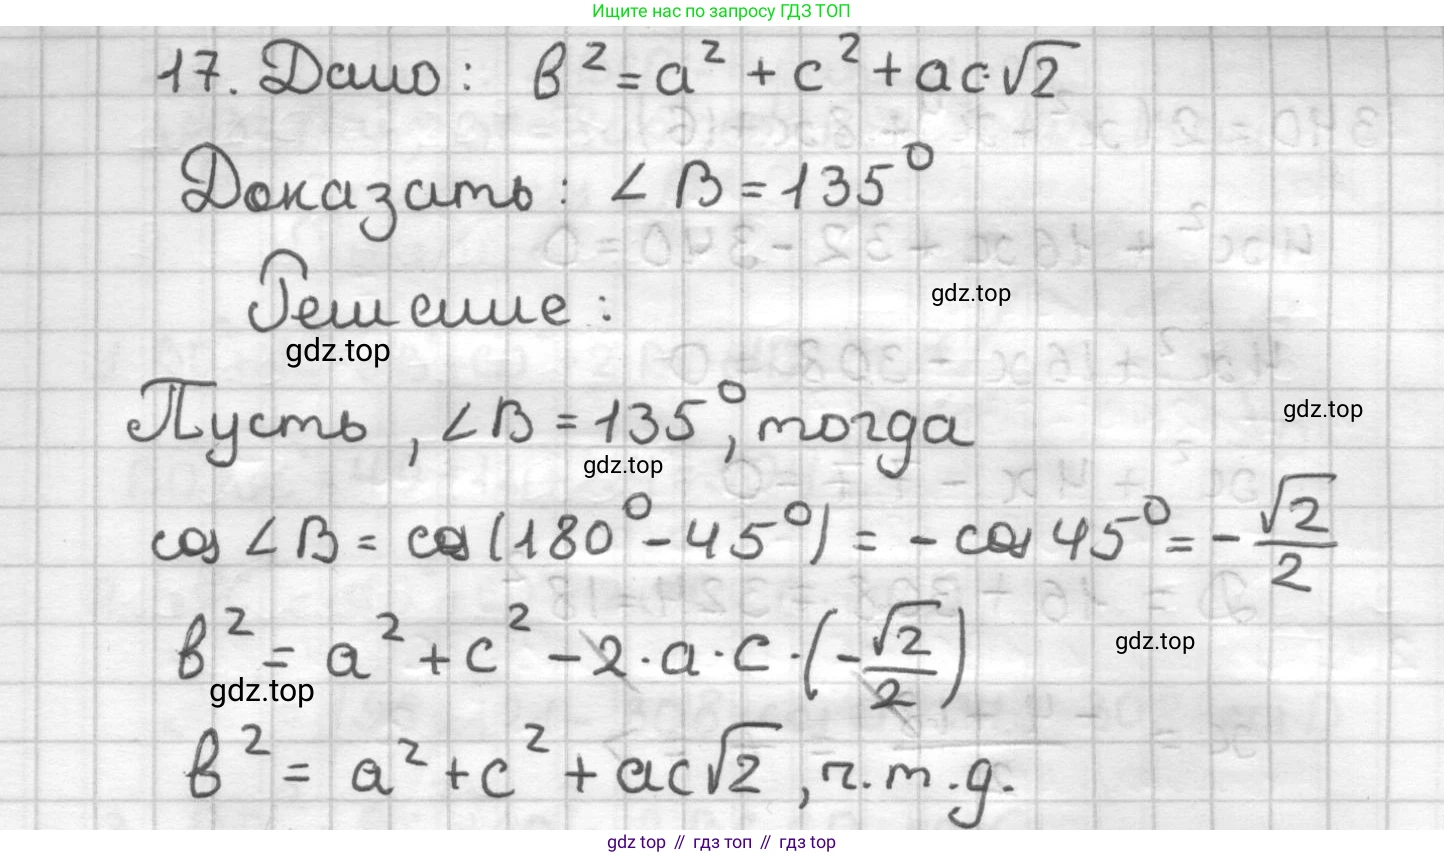 Ищите нас по запросу ГДЗ ТОП
17. Дано: b² = a² + c² + ac·√2
Доказать: ∠B = 135°
Решение:
gdz.top
gdz.top
Пусть, ∠B = 135°, тогда
gdz.top
gdz.top
cos ∠B = cos(180° - 45°) = - cos 45° = - √2/2
b² = a² + c² - 2·a·c·(-√2/2)
gdz.top
gdz.top
b² = a² + c² + ac√2, ч.т.д.
gdz top // гдз топ // гдз top